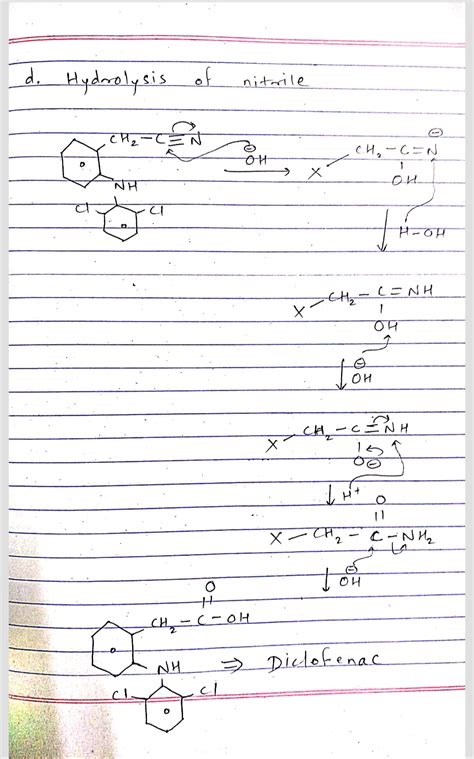 d. Hydrolysis of nitrile
CH2 – C ≡ N
⊖
OH
NH
Cl Cl
X – CH2 – C = N ⊖
OH
H – OH
X – CH2 – C = NH
OH
⊖
OH
X – CH2 – C = NH
O ⊖
H+
O
X – CH2 – C – NH2
⊖
OH
O
CH2 – C – OH
NH ⇒ Diclofenac
Cl Cl